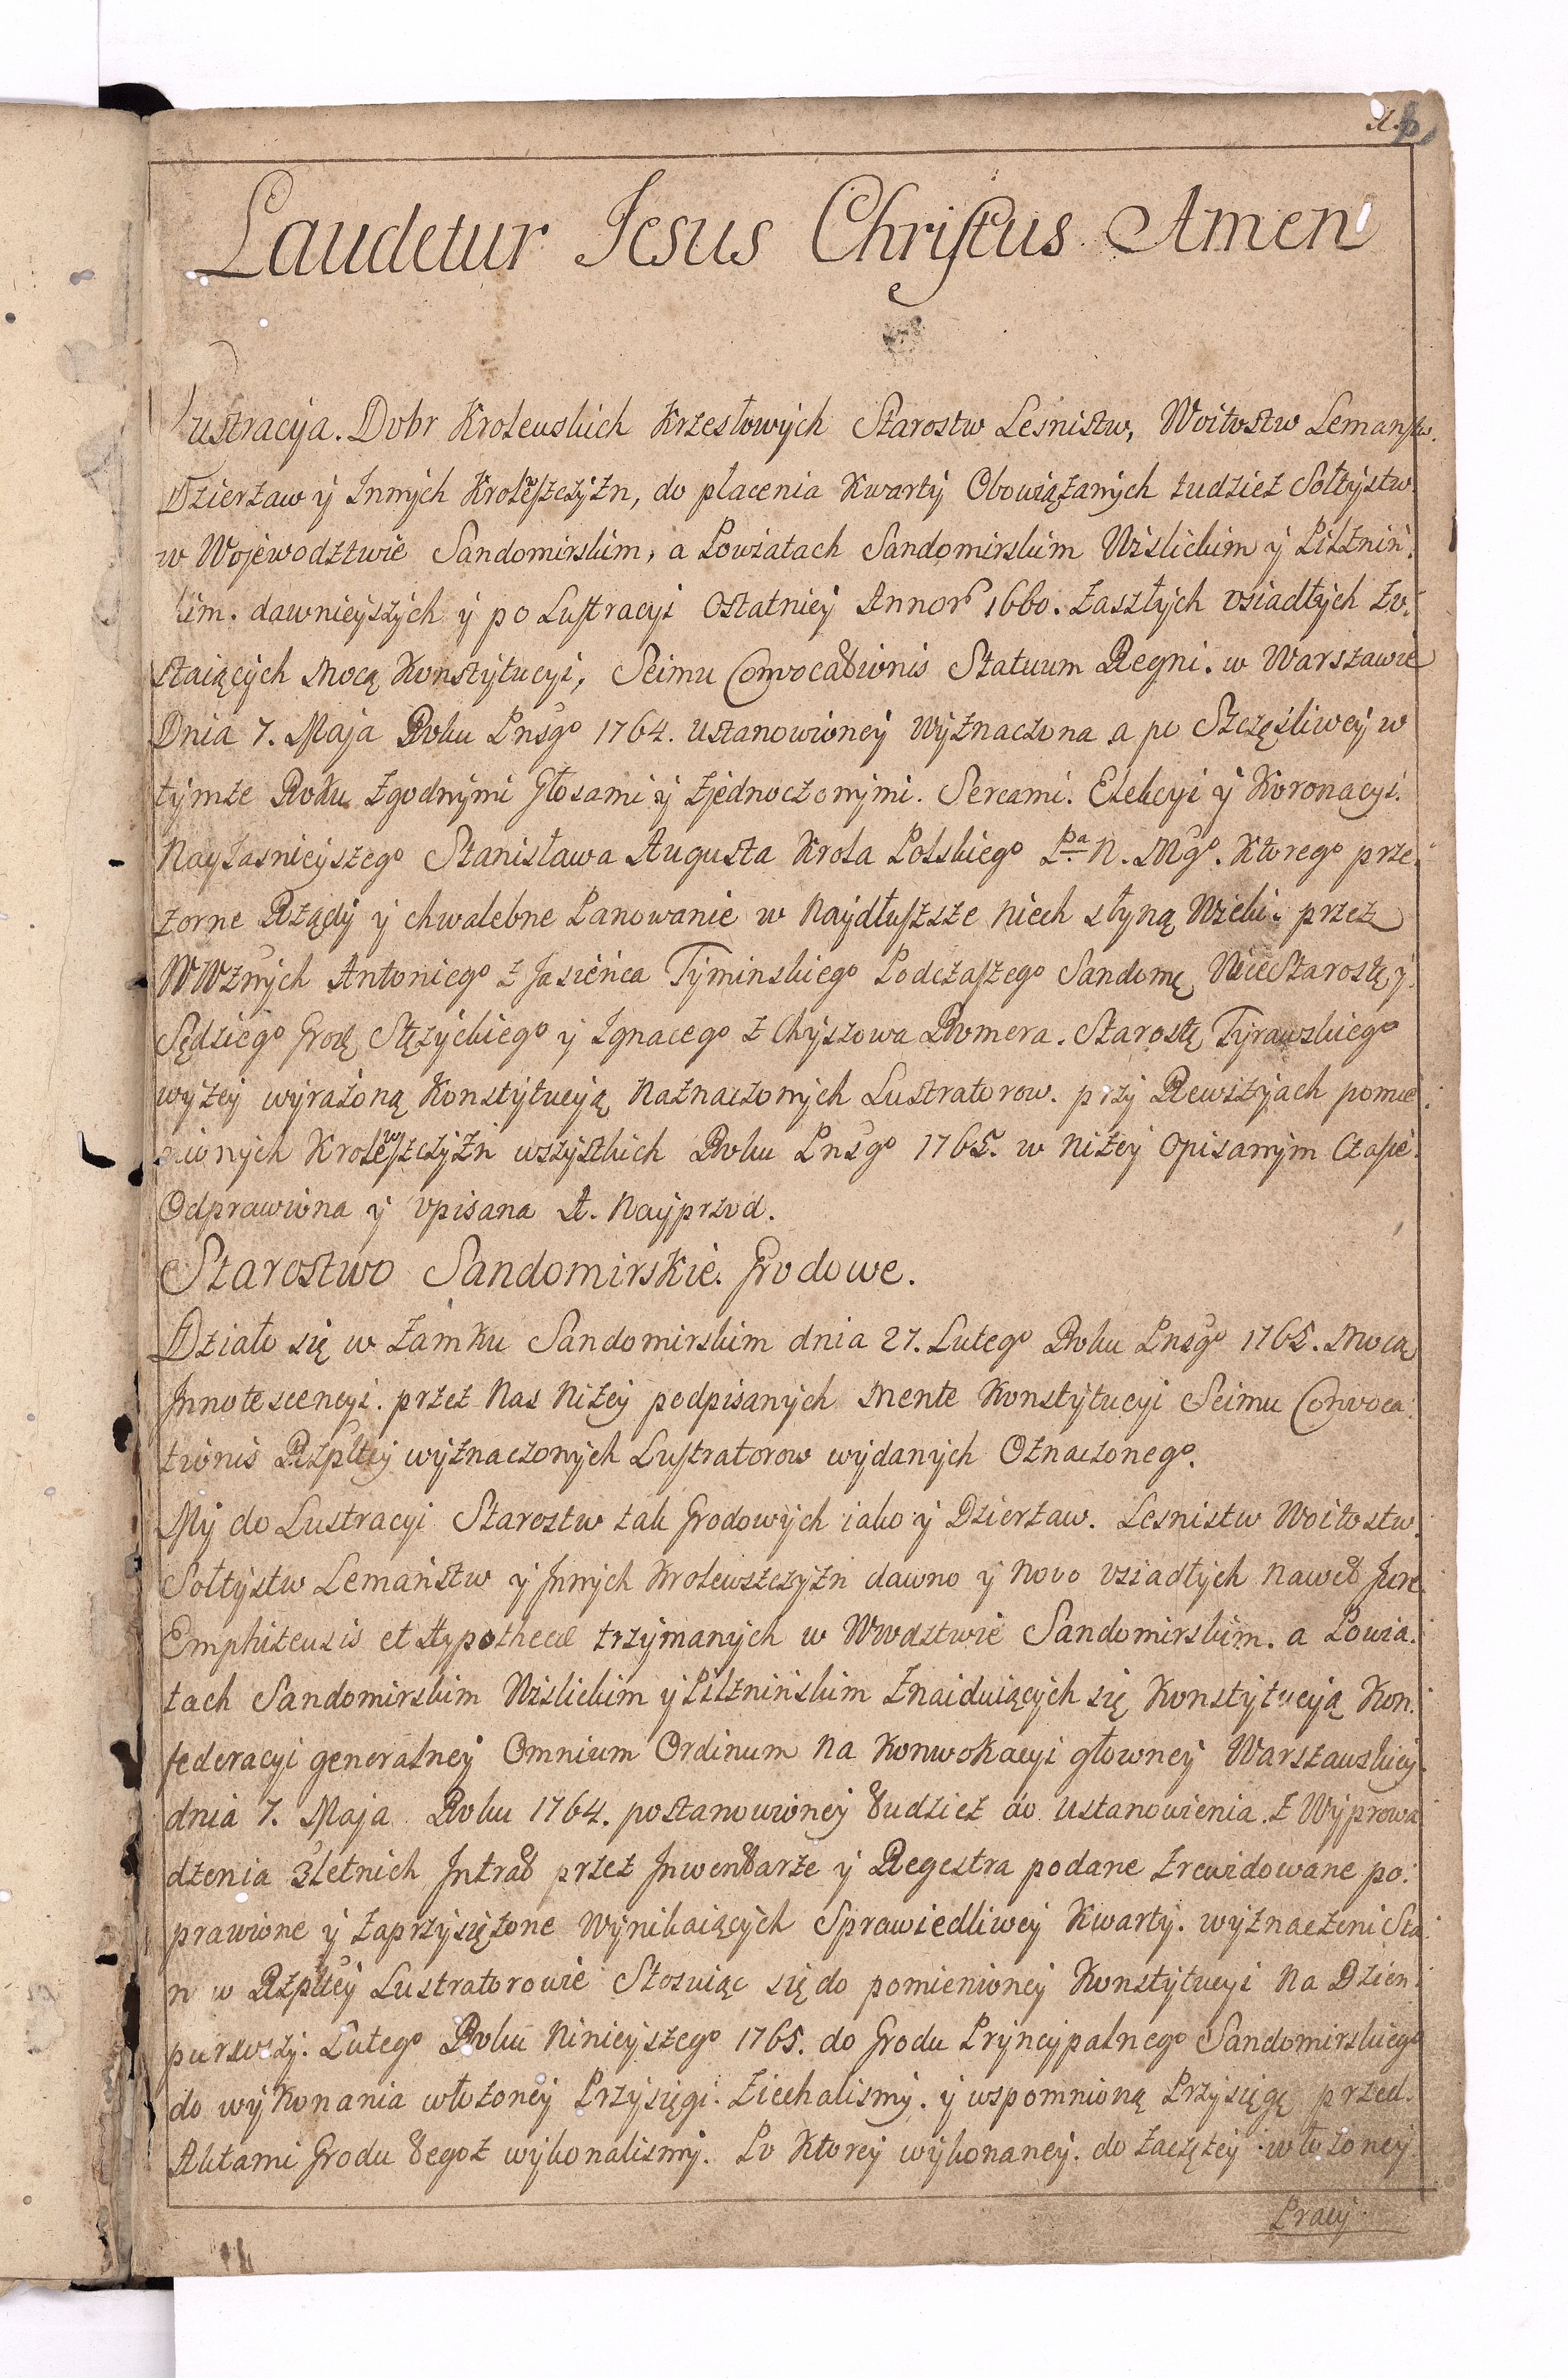 Laudetur Jesus Christus Amen
Lustracyia. Dobr Krolewskich Krzesłowych Starostw Lesnistw, Woitostw Lemanstw.
Dzierżaw y Innych Krolewszczyżn, do płacenia Kwarty Obowiązanych tudzież Sołtystw.
w Wojewodztwie Sandomirskim, a Powiatach Sandomirskim Wislickim y Pilżniń.
kim. dawnieyszych y po Lustracyi Ostatniey Annor 1660. zaszłych osiadłych zo.
staiących Mocą Konstytucyi, Seimu Convocationis Statuum Regni. w Warszawie
Dnia 7. Maja Roku Pnsgo 1764. ustanowioney wyznaczona a po Szczęśliwey w
tymże Roku zgodnymi Głosami y zjednoczonymi. Sercami. Elekcyi y Koronacyi.
Nayjasnieyszego Stanisława Augusta Krola Polskiego Pa N. Mgo. Ktorego prze.
zorne Rządy y chwalebne Panowanie w Naydłuższe niech słyną Wieki. przez
WWżnych Antoniego z Jasieńca Tyminskiego Podczaszego Sandomę, ViceStarostę y
Sędziego Grodę Stężyckiego y Ignacego z Chyszowa Romera. Starostę Tyrawskiego
wyżey wyrażoną Konstytucyią naznaczonych Lustratorow. przy Rewizyjach pomie.
nionych Krolewszczyżn wszystkich Roku Pnsgo 1765. w niżey Opisanym Czasie.
Odprawiona y opisana A. Nayprzod.
Starostwo Sandomirskie. Grodowe.
Działo się w Zamku Sandomirskim dnia 27. Lutego Roku Pnsgo 1765. Mocą
Innotescencyi. przez Nas niżey podpisanych Mente Konstytucyi Seimu Convoca.
tionis Rzpltey wyznaczonych Lustratorow wydanych Oznaczonego.
My do Lustracyi Starostw tak Grodowych iako y Dzierżaw. Lesnistw Woitostw.
Sołtystw Lemaństw y Innych Krolewszczyżn dawno y Novo osiadłych nawet Jure.
Emphiteusis et Hypothecæ trzymanych w Wwdztwie Sandomirskim. a Powia.
tach Sandomirskim Wislickim y Pilżnińskim znaiduiących się Konstytucyą Kon.
federacyi generalney Omnium Ordinum na Konwokacyi głowney Warszawskiey.
dnia 7. Maja Roku 1764. postanowioney tudzież do ustanowienia. z Wyprowa
dzenia 3letnich Intrat przez Inwentarze y Regestra podane zrewidowane po.
prawione y zaprzysiężone wynikaiących Sprawiedliwey Kwarty. wyznaczeni Sta.
n w Rzpltey Lustratorowie Stosuiąc się do pomienioney Konstytucyi na Dzien.
purwszy. Lutego Roku Ninieyszego 1765. do Grodu Pryncypalnego Sandomirskiego
do wykonania włożoney Przysięgi. ziechalismy. y wspomnioną Przysięgę przed.
Aktami Grodu tegoż wykonalismy. Po Ktorey wykonaney. do zaczętey włożoney
Pracy.